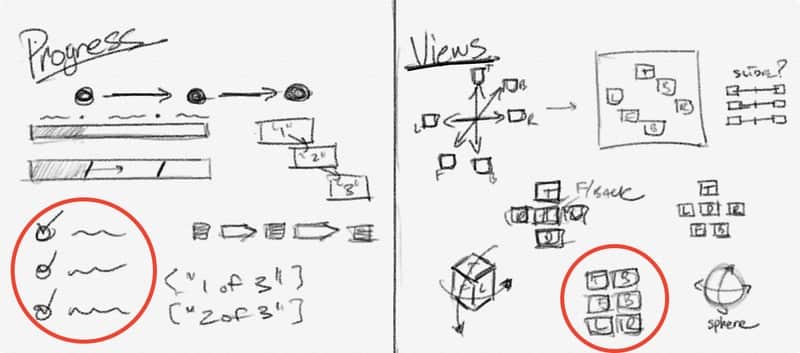 Progress
"1"
"2"
"3"
["1 of 3"]
["2 of 3"]
Views
T
B
L
R
F
B
T
L
B
SLIDER?
T
F/BACK
T
L
R
F B
T
F L
T B
F B
L R
sphere